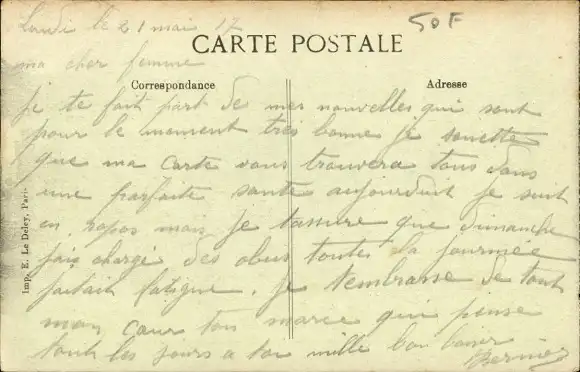 Lundi le 21 mai 17
50F
CARTE POSTALE
ma cher femme
Correspondance
Adresse
je te fait part de mes nouvelles qui sont
pour le moment très bonne je souette
que ma carte vous trouvera tous dans
une parfaite santé aujourduit je suit
en repos mais je tassure que dimanche
jais chargé des obus toutes la journée
jaitait fatigué. je t'embrasse de tout
mon cœur ton marie qui pense
tout les jours a toi mille bon baiser
Imp. E. Le Deley, Paris